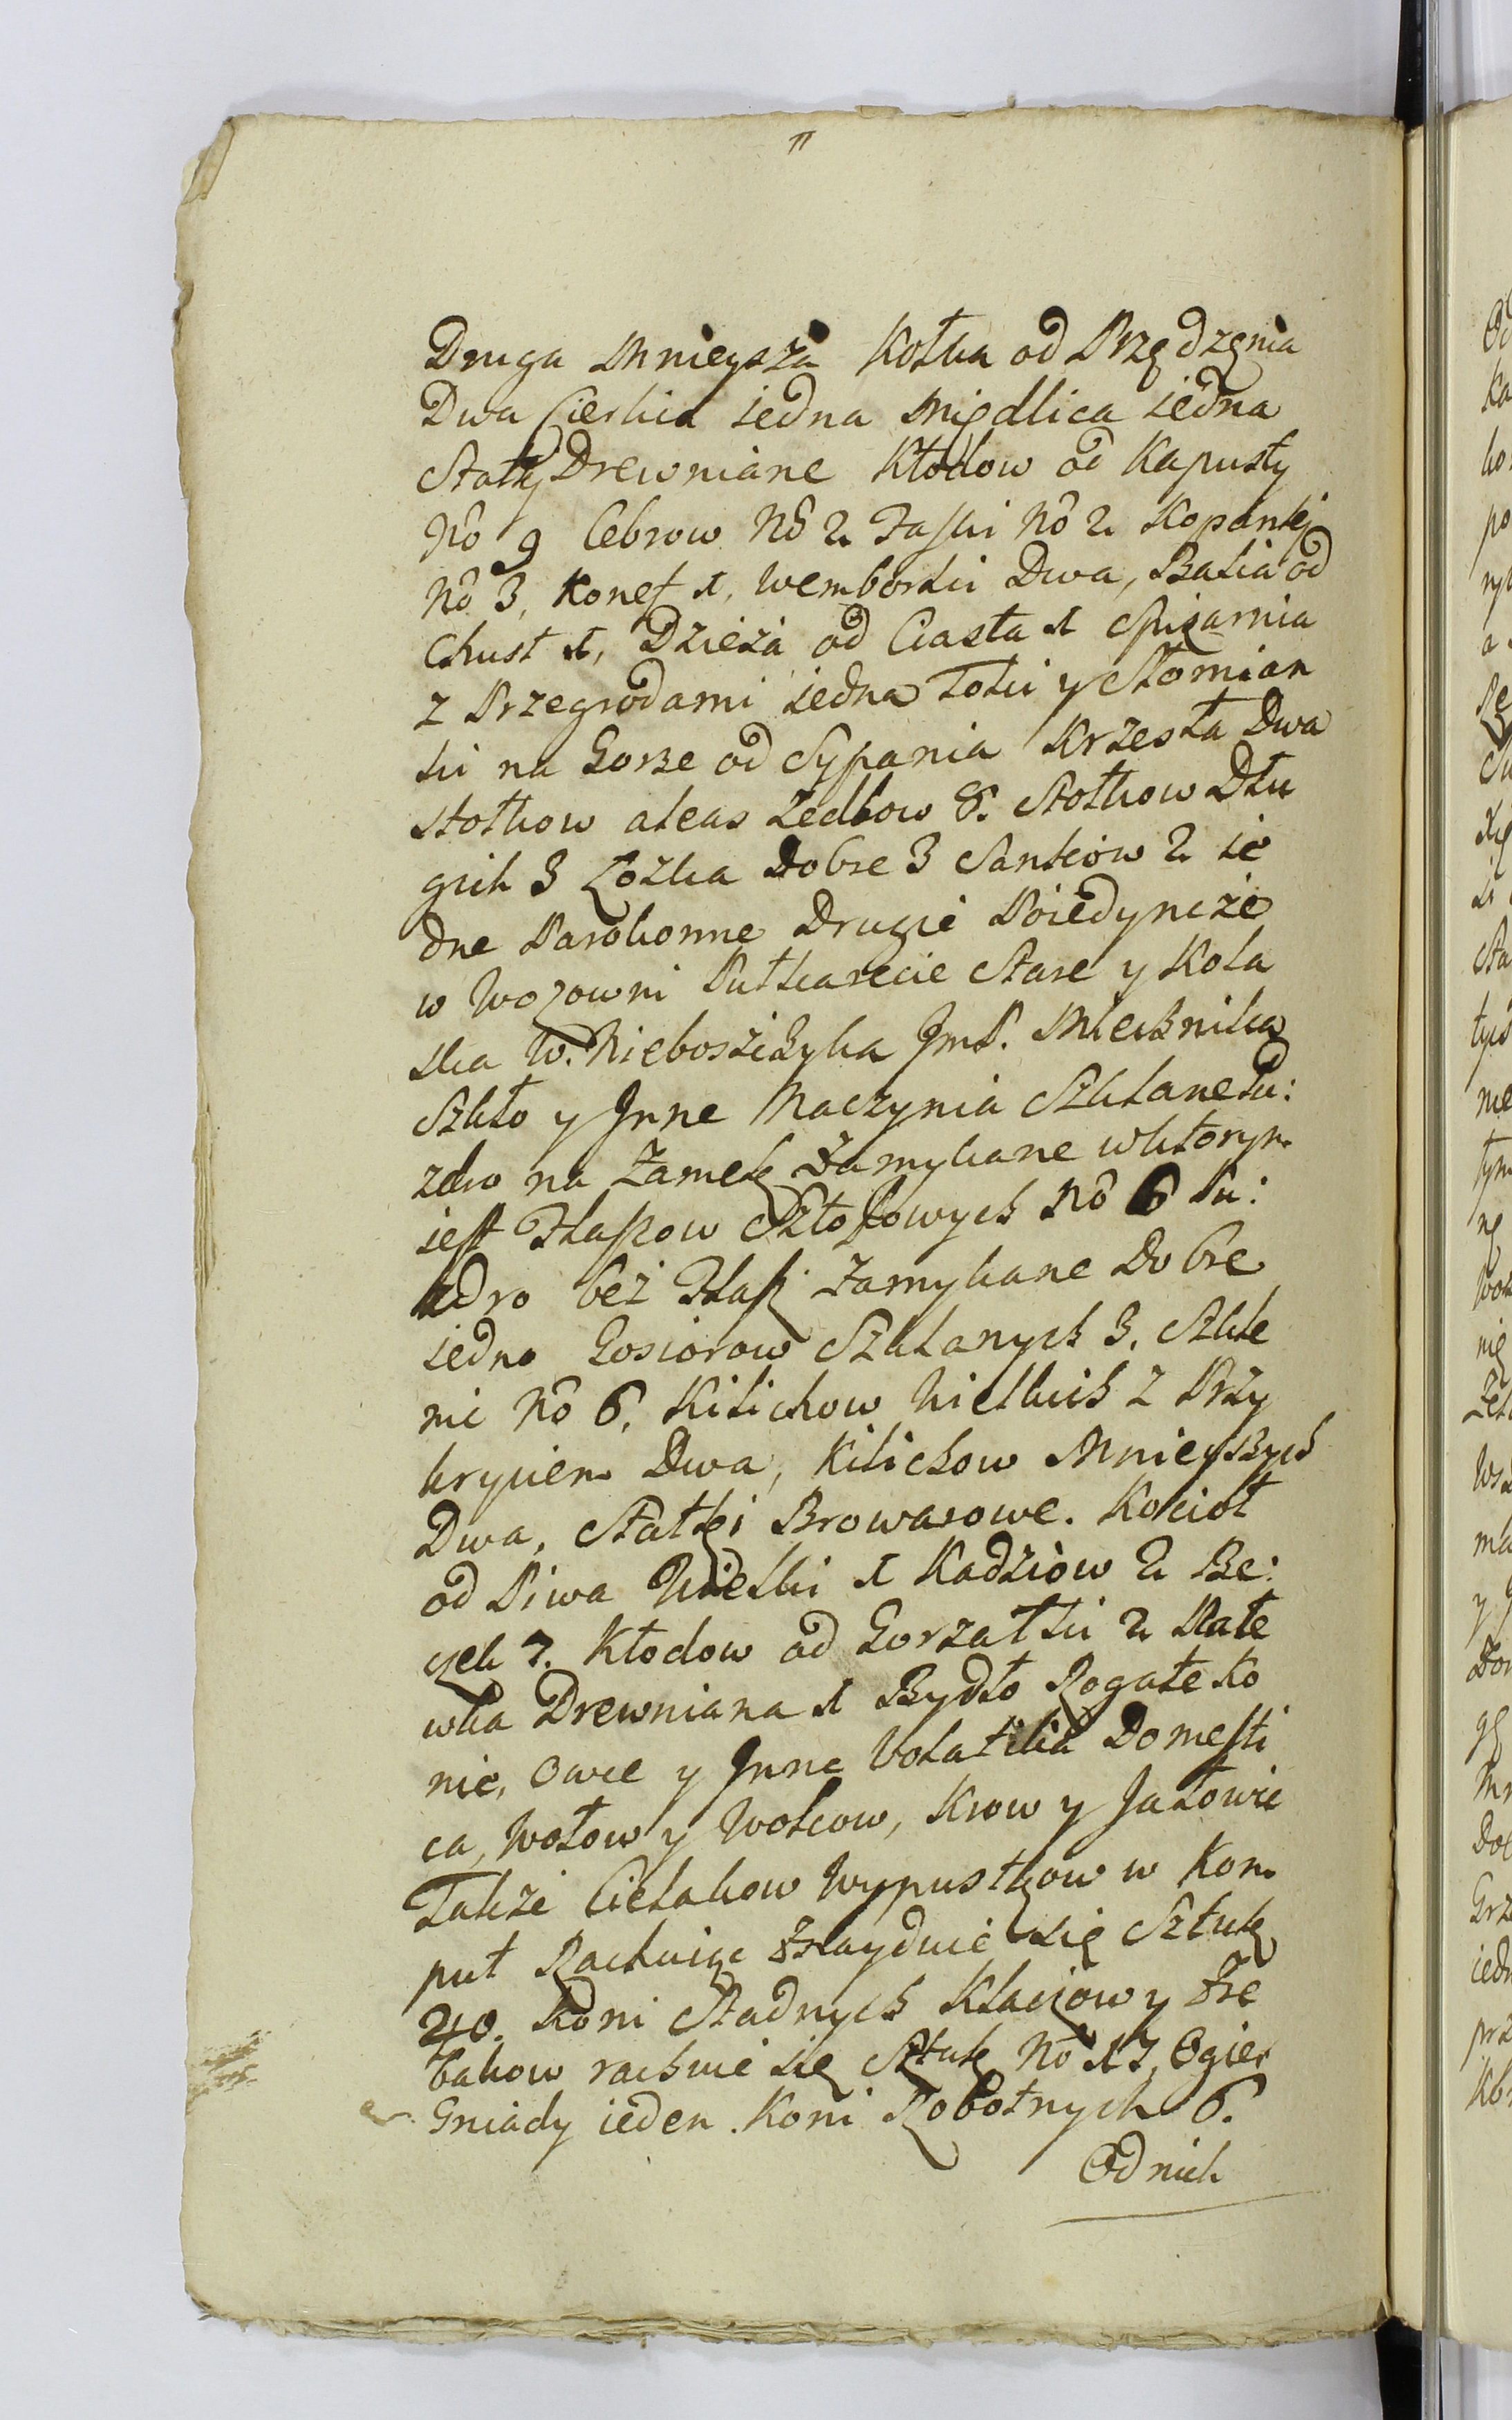 Druga Mnieysza Kołka od Przędzęnia
Dwa Cierlica iedna Międlica iedna
Statky Drewniane Kłodow od Kapusty
No 9 Cebrow No 2 Faski No 2 Kopanki
No 3, Konef 1, Wemborki Dwa, Balia od
Chust 1, Dzieża od Ciasta 1 Spiżarnia
z Przegrodami iedna Tolki y Słomian
ki na Gorze od Sypania Krzesła Dwa
stołkow aleas Zedlow 8. Stołkow Dłu
gich 3 Łożka Dobre 3 Sankiow 2 ie
dne Parokonne Drugie Poiedyncze
w Wozowni Pułkarecie Stare y Kola
ska W. Nieboszczyka JmP. Miecznika
Szkło y Jnne Naczynia Szklane Pu:
zdro na Zamek Zamykane wktorym
iest Flaszow Sztofowych No 6 Pu:
zdro bez Flasz Zamykane Dobre
iedno Gosiorow Szklanych 3. Szkle
nic No 6. Kilichow Wielkich z Przy
kryciem Dwa, Kilichow Mnieyszych
Dwa, Statki Browarowe. Kocioł
od Piwa Wielki 1 Kadziow 2 Be:
czek 7. Kłodow od Gorzałki 2 Kale
wka Drewniana 1 Bydło Rogate Ko
nie, Owce y Jnne Volatilia Domesti
ca, Wołow y Wolcow, Krow y Jałowic
Także Cielakow Wypustkow w Kom
put Rachuiąc Znayduie się Sztuk
40. Koni Stadnych Klaczow y Zre
bakow rachuie się Sztuk No 17, Ogier
Gniady ieden. Koni Robotnych 6.
Od nich